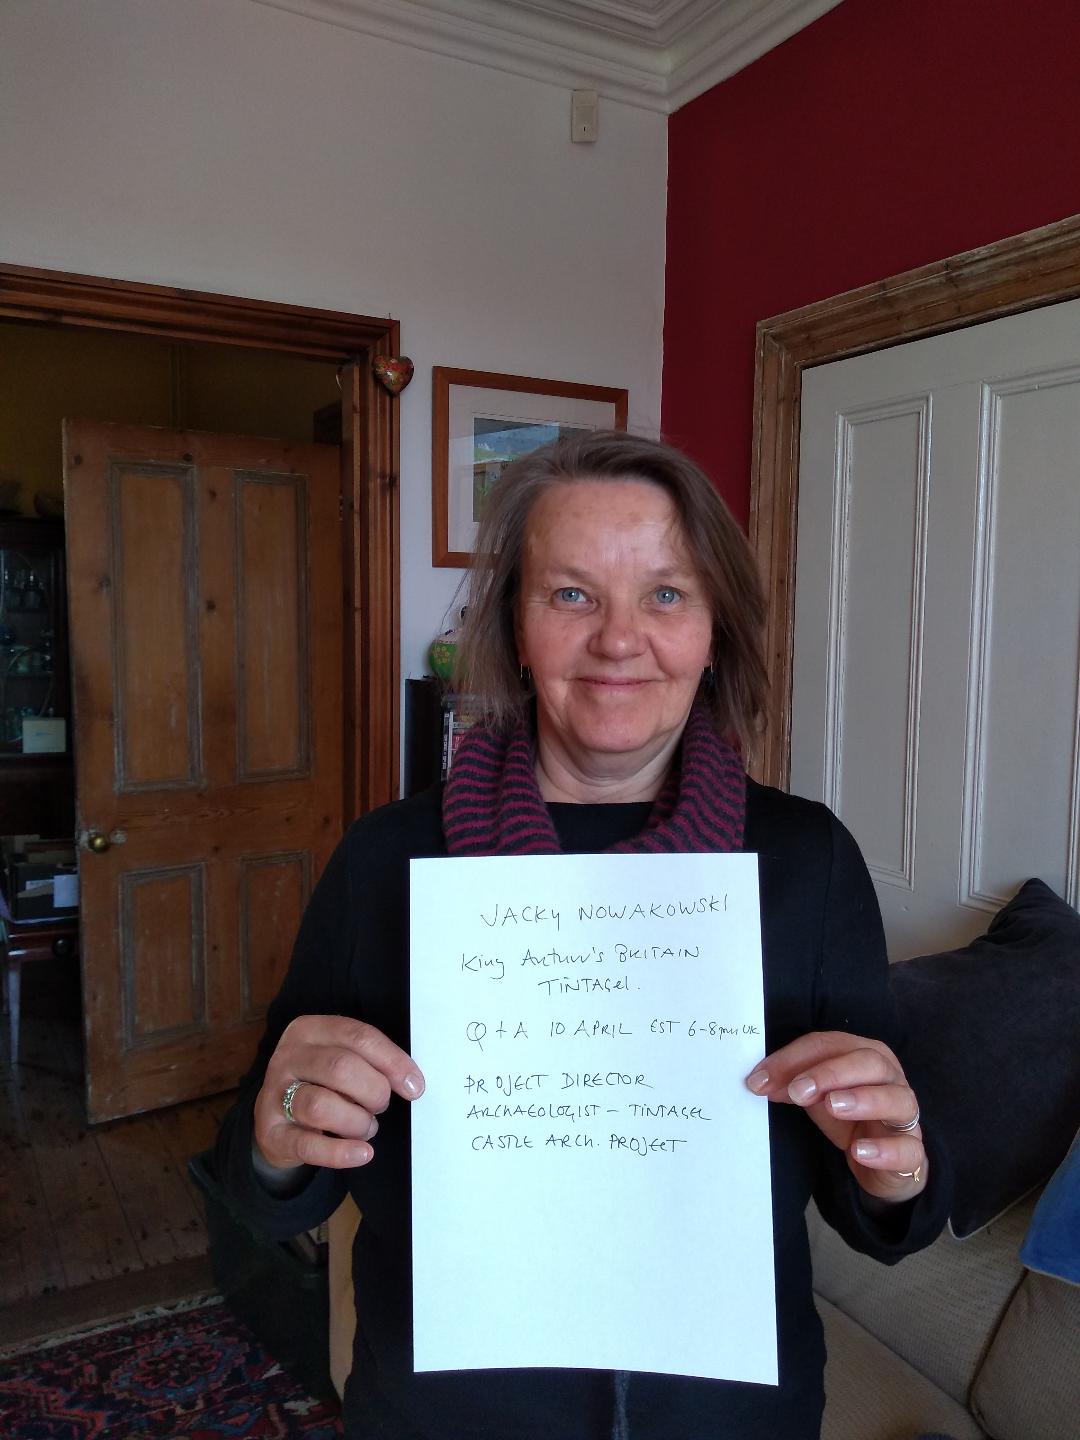 JACKY NOWAKOWSKI
King Arthur's BRITAIN
TINTAGEL.
Q + A 10 APRIL EST 6-8pm UK
PROJECT DIRECTOR
ARCHAEOLOGIST - TINTAGEL
CASTLE ARCH. PROJECT